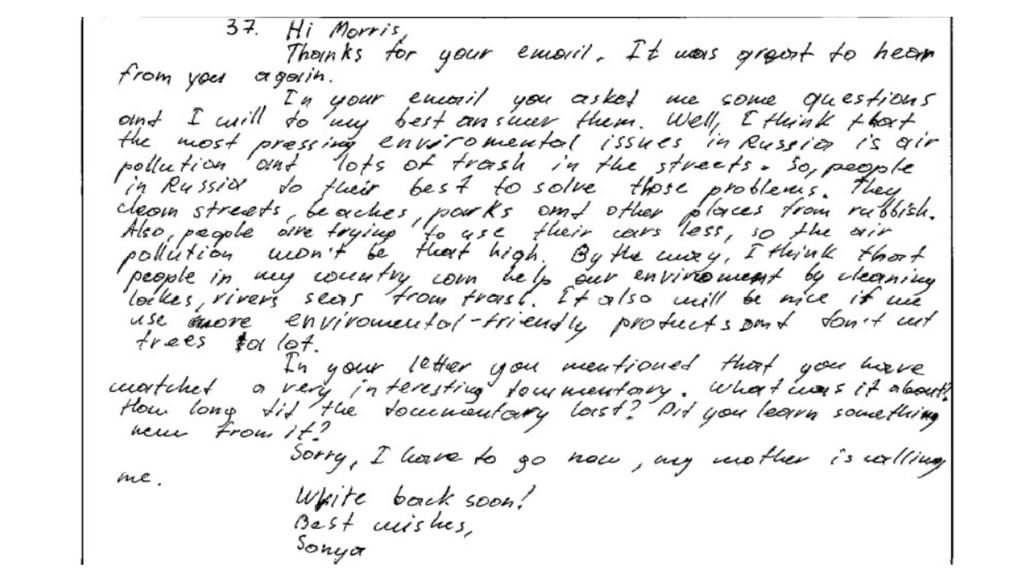 37. Hi Morris,
Thanks for your email. It was great to hear
from you again.
In your email you asked me some questions
and I will do my best answer them. Well, I think that
the most pressing enviromental issues in Russia is air
pollution and lots of trash in the streets. So, people
in Russia do their best to solve those problems. They
clean streets, beaches, parks and other places from rubbish.
Also, people are trying to use their cars less, so the air
pollution won't be that high. By the way, I think that
people in my country can help our enviroment by cleaning
lakes, rivers seas from trash. It also will be nice if we
use more enviromental-friendly products and don't cut
trees a lot.
In your letter you mentioned that you have
watched a very interesting documentary. What was it about?
How long did the documentary last? Did you learn something
new from it?
Sorry, I have to go now, my mother is calling
me.
Write back soon!
Best wishes,
Sonya